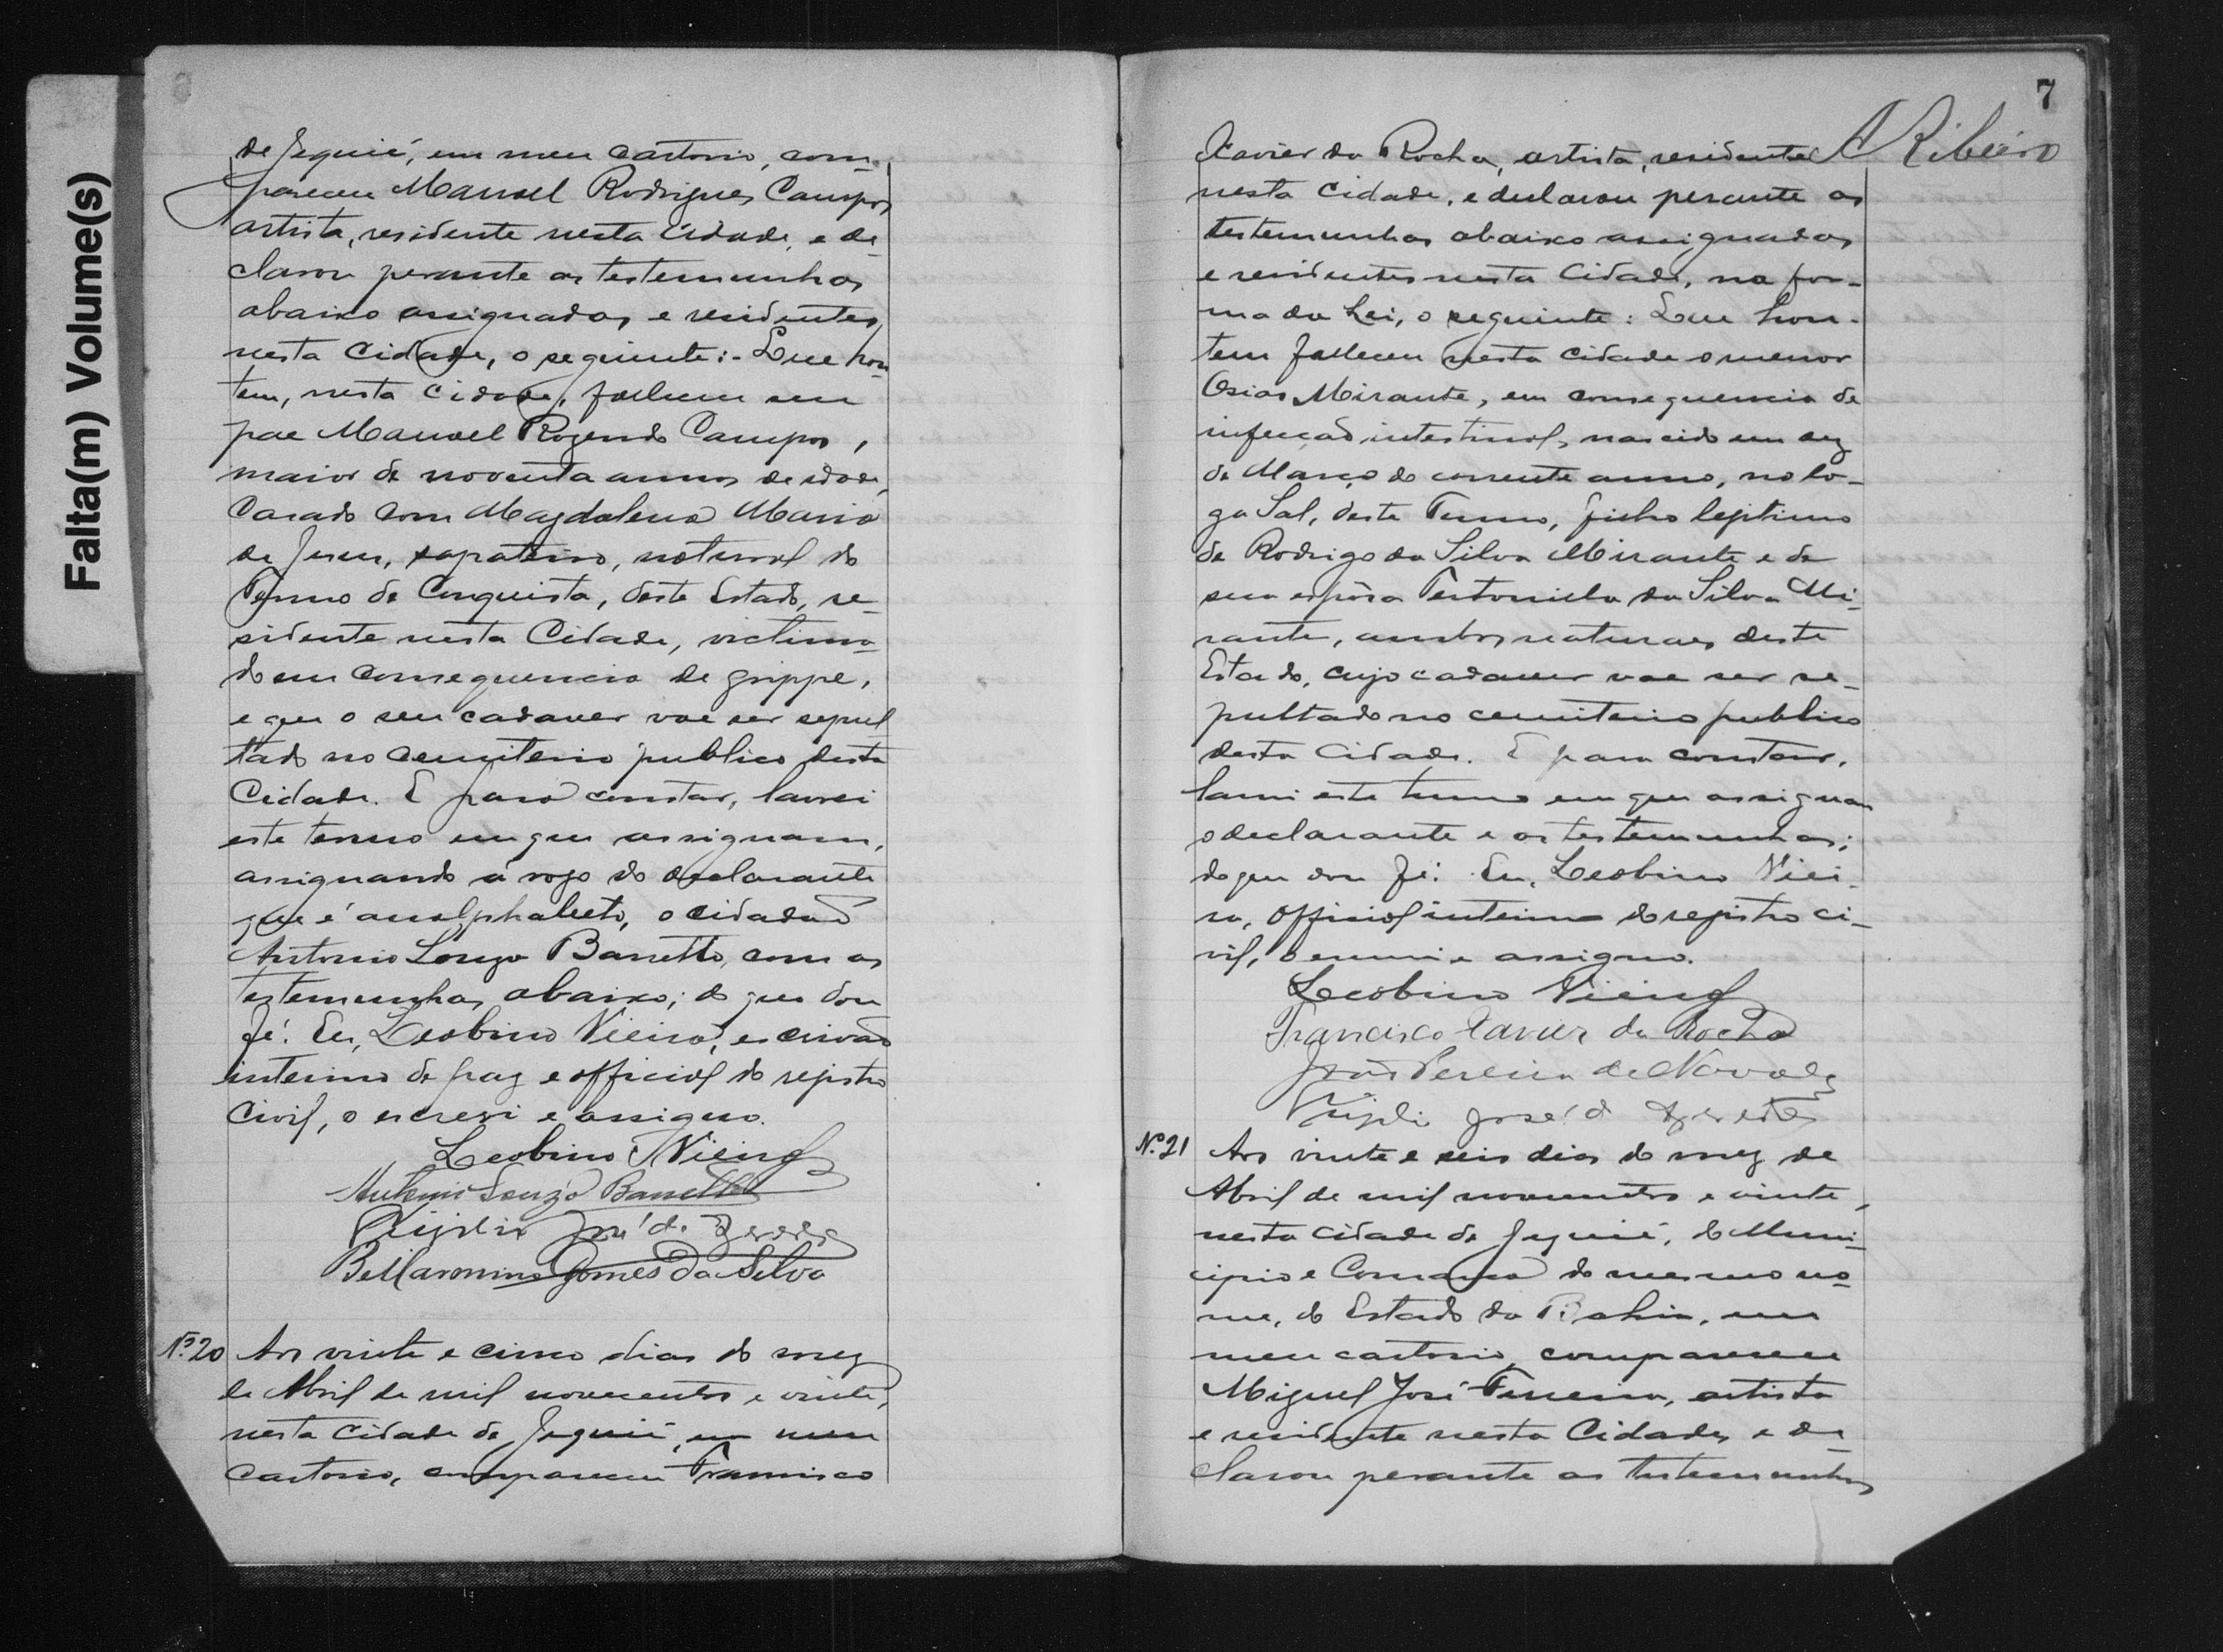 Falta(m) Volume(s)
de Jequié, em meu cartorio, com-
pareceu Manoel Rodrigues Campos
artista, residente nesta cidade, e de-
clarou perante as testemunhas
abaixo assignadas e residentes
nesta Cidade, o seguinte:- Que hon-
tem, nesta cidade, falleceu seu
pae Manoel Rozendo Campos,
maior de noventa annos de idade,
Casado com Magdalena Maria
de Jesus, sapateiro, natural do
Termo de Conquista, deste Estado, re-
sidente nesta Cidade, victima-
do em consequencia de grippe,
e que o seu cadaver vae ser sepul
tado no cemiterio publico desta
Cidade. E para constar, lavrei
este termo em que assignam,
assignando á rogo do declarante
que é analphabeto, o cidadão
Antonio Souza Barretto, com as
testemunhas abaixo; do que dou
fé. Eu, Leobino Vieira, escrivão
interino de paz e official do registro
Civil, o escrevi e assigno.
Leobino Vieira
Antonio Souza Barretto
José de
Bellarmino Gomes da Silva
Nº 20 Aos vinte e cinco dias do mez
de Abril de mil novecentos e vinte,
nesta Cidade de Jequié, em meu
Cartorio, compareceu Francisco
7
A Ribeiro
Xavier da Rocha, artista, residente
nesta Cidade, e declarou perante as
testemunhas abaixo assignadas,
e residentes nesta Cidade, na for-
ma da Lei, o seguinte: Que hon-
tem falleceu nesta cidade o menor
Osias Mirante, em consequencia de
infecção intestinal, nascido em dez
de Março do corrente anno, no lo-
ga Sal, deste Termo, filho legitimo
de Rodrigo da Silva Mirante e de
sua espôsa da Silva Mi-
rante, ambos naturaes deste
Estado, cujo cadaver vae ser se-
pultado no cemiterio publico
desta Cidade. E para constar,
lavrei este termo em que assignam
o declarante e as testemunhas;
do que dou fé. Eu, Leobino Viei-
ra, official interino do registro ci-
vil, o escrevi e assigno.
Leobino Vieira
Francisco Xavier da Rocha
João Pereira de Novaes
José d
Nº 21 Aos vinte e seis dias do mez de
Abril de mil novecentos e vinte,
nesta cidade de Jequié, do Muni-
cipio e Comarca do mesmo no-
me, do Estado da Bahia, em
meu cartorio, compareceu
Miguel José Ferreira, artista
e residente nesta Cidade, e de-
clarou perante as testemunhas